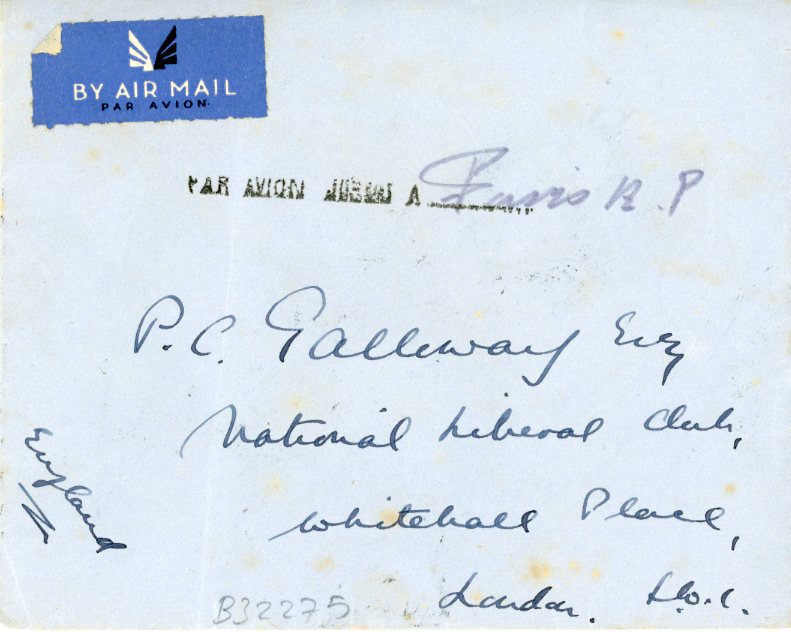 BY AIR MAIL
PAR AVION
PAR AVION JUSQU A Paris R.P
P.C. Galloway Esq
National Liberal Club,
Whitehall Place,
London. S.W.1.
England
B32275